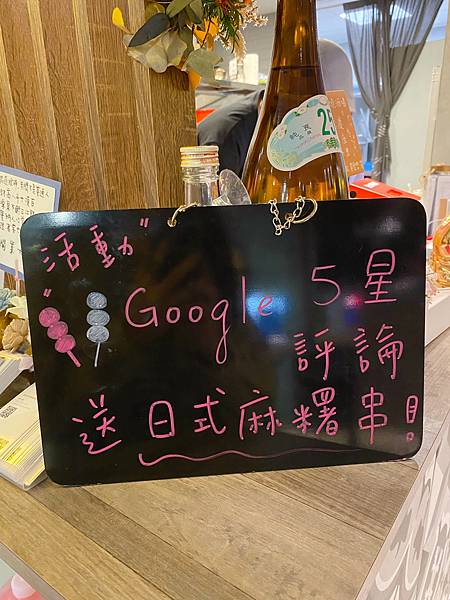 "活動"
Google 5星
評論
送日式麻糬串!
純真
25